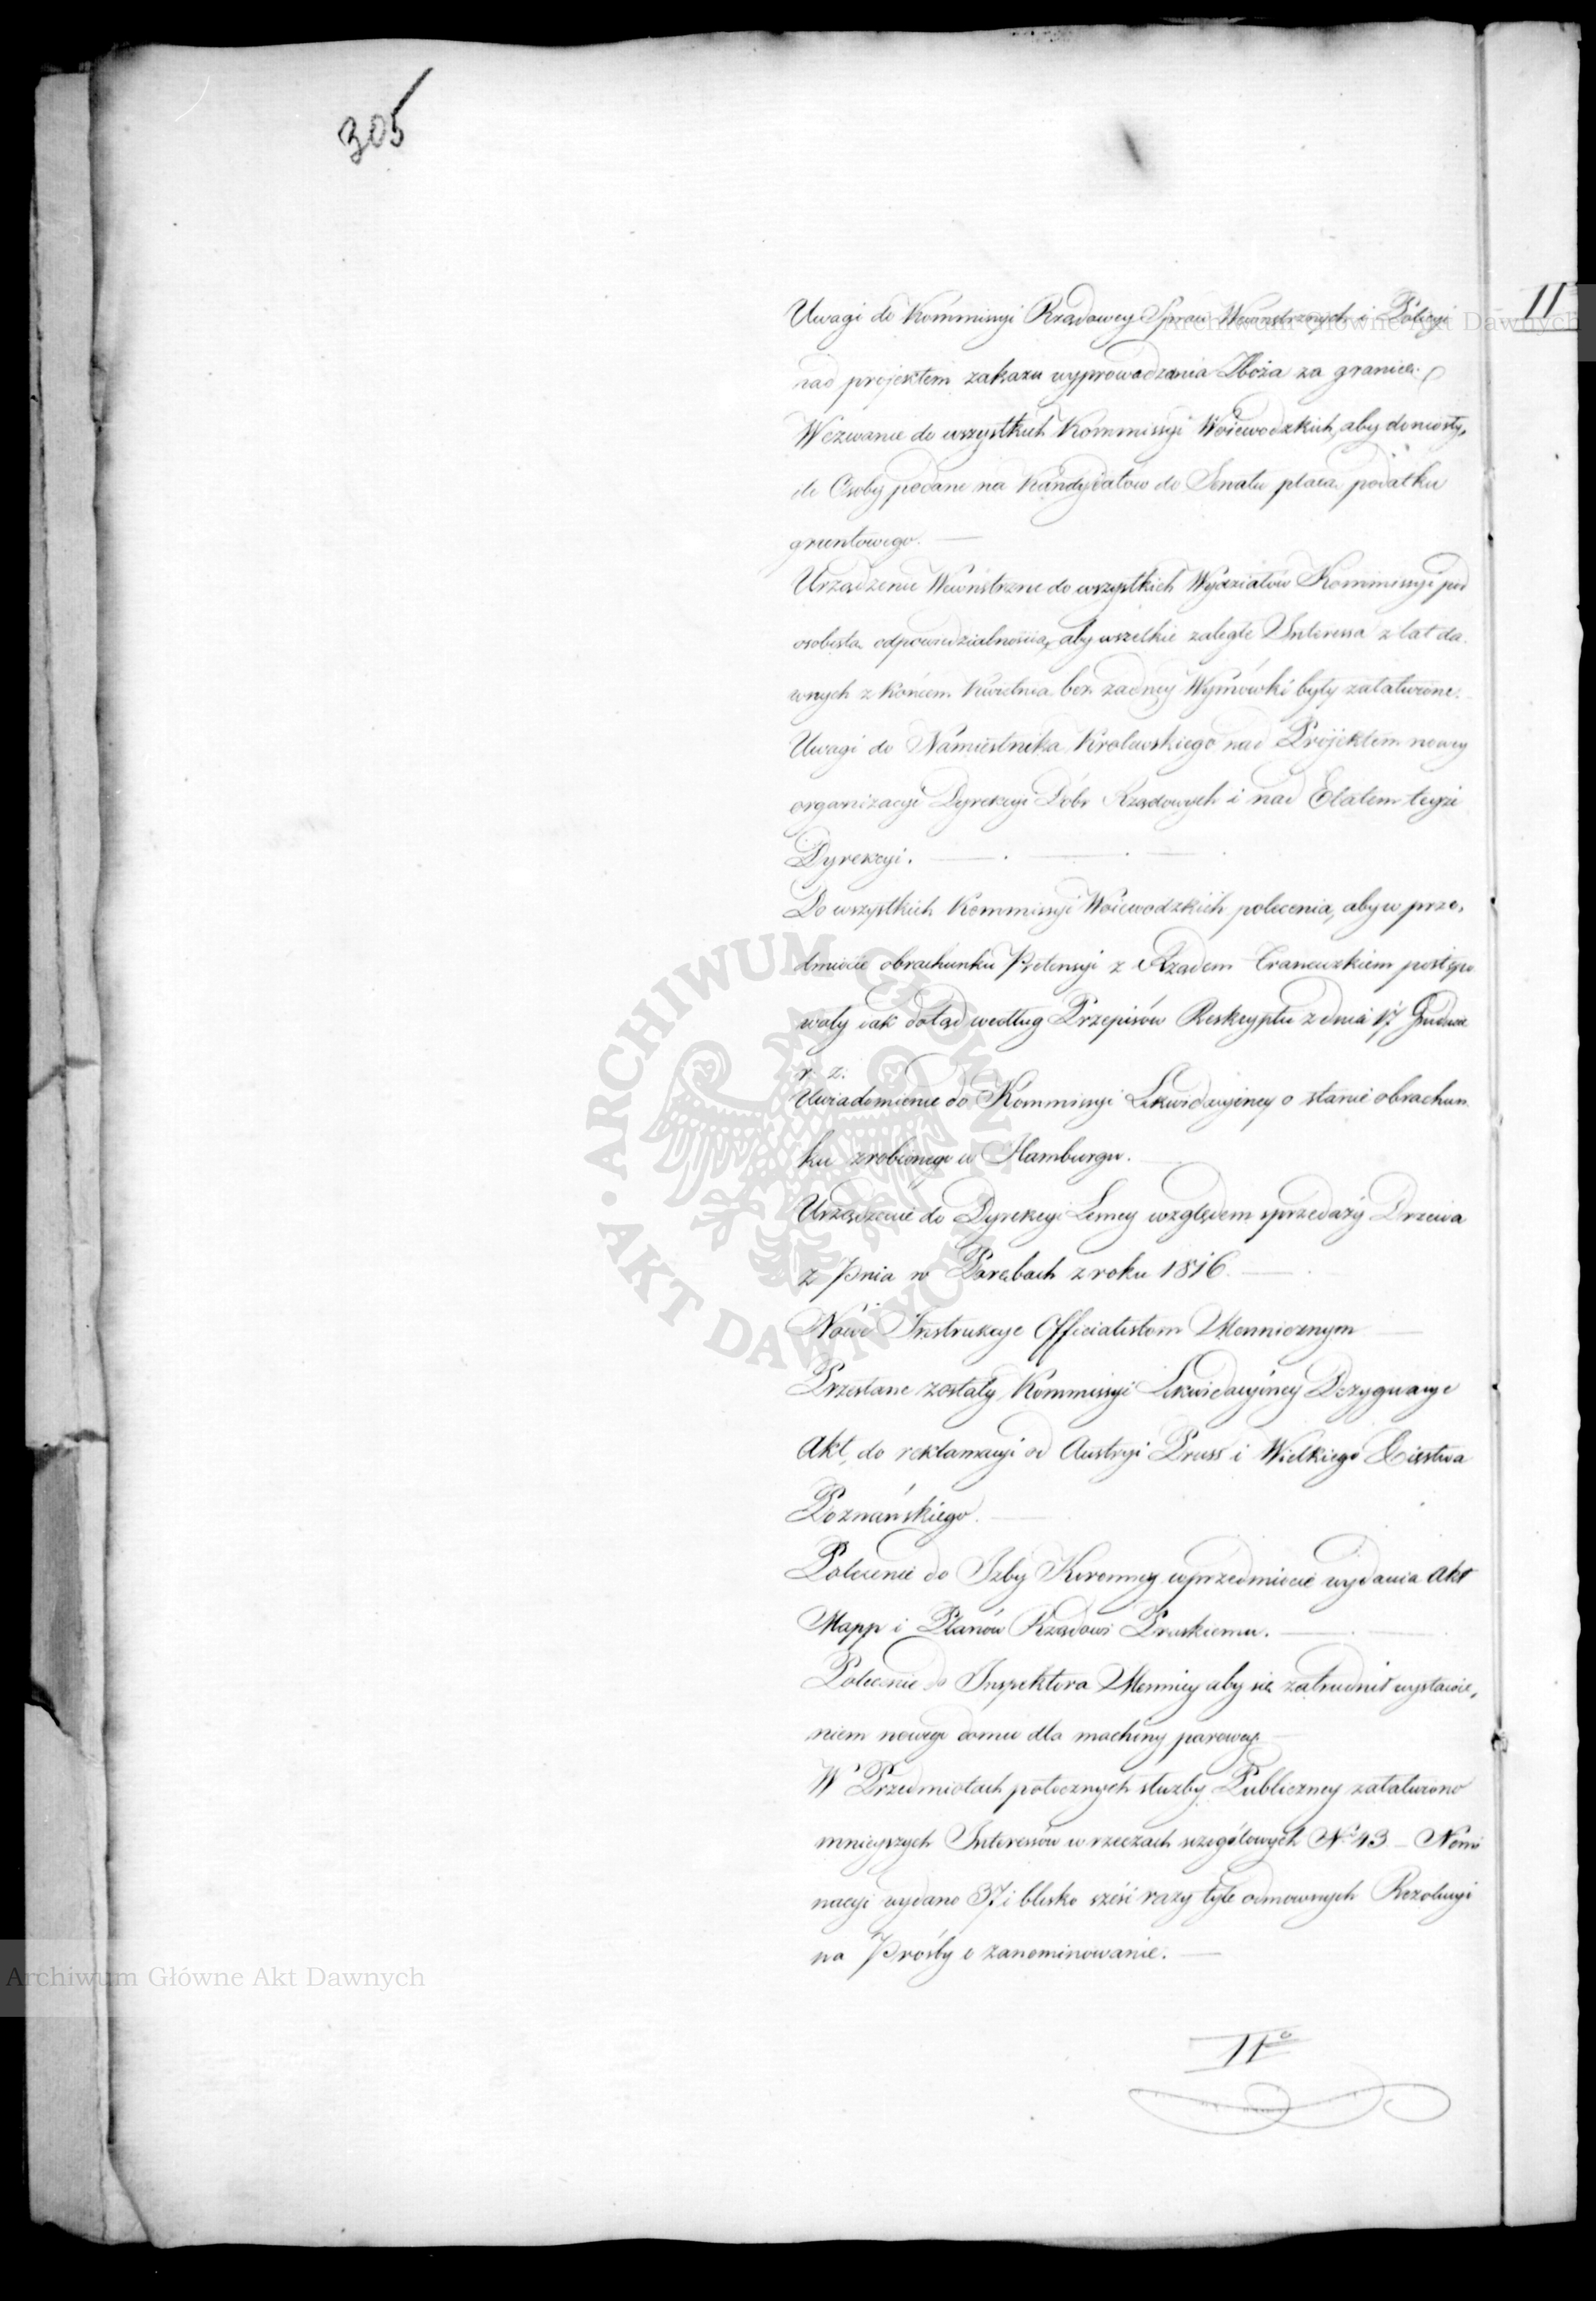 305
11
Uwagi do Kommissyi Rządowey Spraw Wewnętrznych i Policyi
nad projektem zakazu wyprowadzania Zboża za granicę.
Wezwanie do wszystkich Kommissyi Woiewodzkich, aby doniosły,
ile Osoby podane na Kandydatów do Senatu płacą podatku
gruntowego. —
Urządzenie Wewnętrzne do wszystkich Wydziałów Kommissyi pod
osobistą odpowiedzialnością, aby wszelkie zaległe Interessa z lat da-
wnych z końcem Kwietnia bez żadney Wymówki były załatwione.
Uwagi do Namiestnika Krolewskiego nad Projektem nowey
organizacyi Dyrekcyi Dóbr Rządowych i nad Etatem teyże
Dyrekcyi. —
Do wszystkich Kommissyi Woiewodzkich polecenia, aby w prze-
dmiocie obrachunku Pretensyi z Rządem Francuzkiem postępo-
wały iak dotąd według Przepisów Reskryptu z dnia 17 Grudnia
r. z.
Uwiadomienie do Kommissyi Likwidacyiney o stanie obrachun-
ku zrobionego w Hamburgu.
Urządzenie do Dyrekcyi Lesney względem sprzedaży Drzewa
z Pnia w Porębach z roku 1816. —
Nowe Instrukcye Officialistom Mennicznym —
Przesłane zostały Kommissyi Likwidacyiney Dezygnacye
Akt, do reklamacyi od Austryi Pruss i Wielkiego Xięstwa
Poznańskiego. —
Polecenie do Izby Koronney w przedmiocie wydania Akt
Mapp i Planów Rządowi Pruskiemu. —
Polecenie do Inspektora Mennicy aby się zatrudnił wystawie-
niem nowego domu dla machiny parowey. —
W Przedmiotach potocznych służby Publiczney załatwiono
mnieyszych Interessów w rzeczach szczegółowych No 43 — Nomi
nacyi wydano 37 i blisko sześć razy tyle odmownych Rezolucyi
na Prośby o zanominowanie. —
IIo
Archiwum Główne Akt Dawnych
Archiwum Główne Akt Dawnych
ARCHIWUM GŁÓWNE AKT DAWNYCH